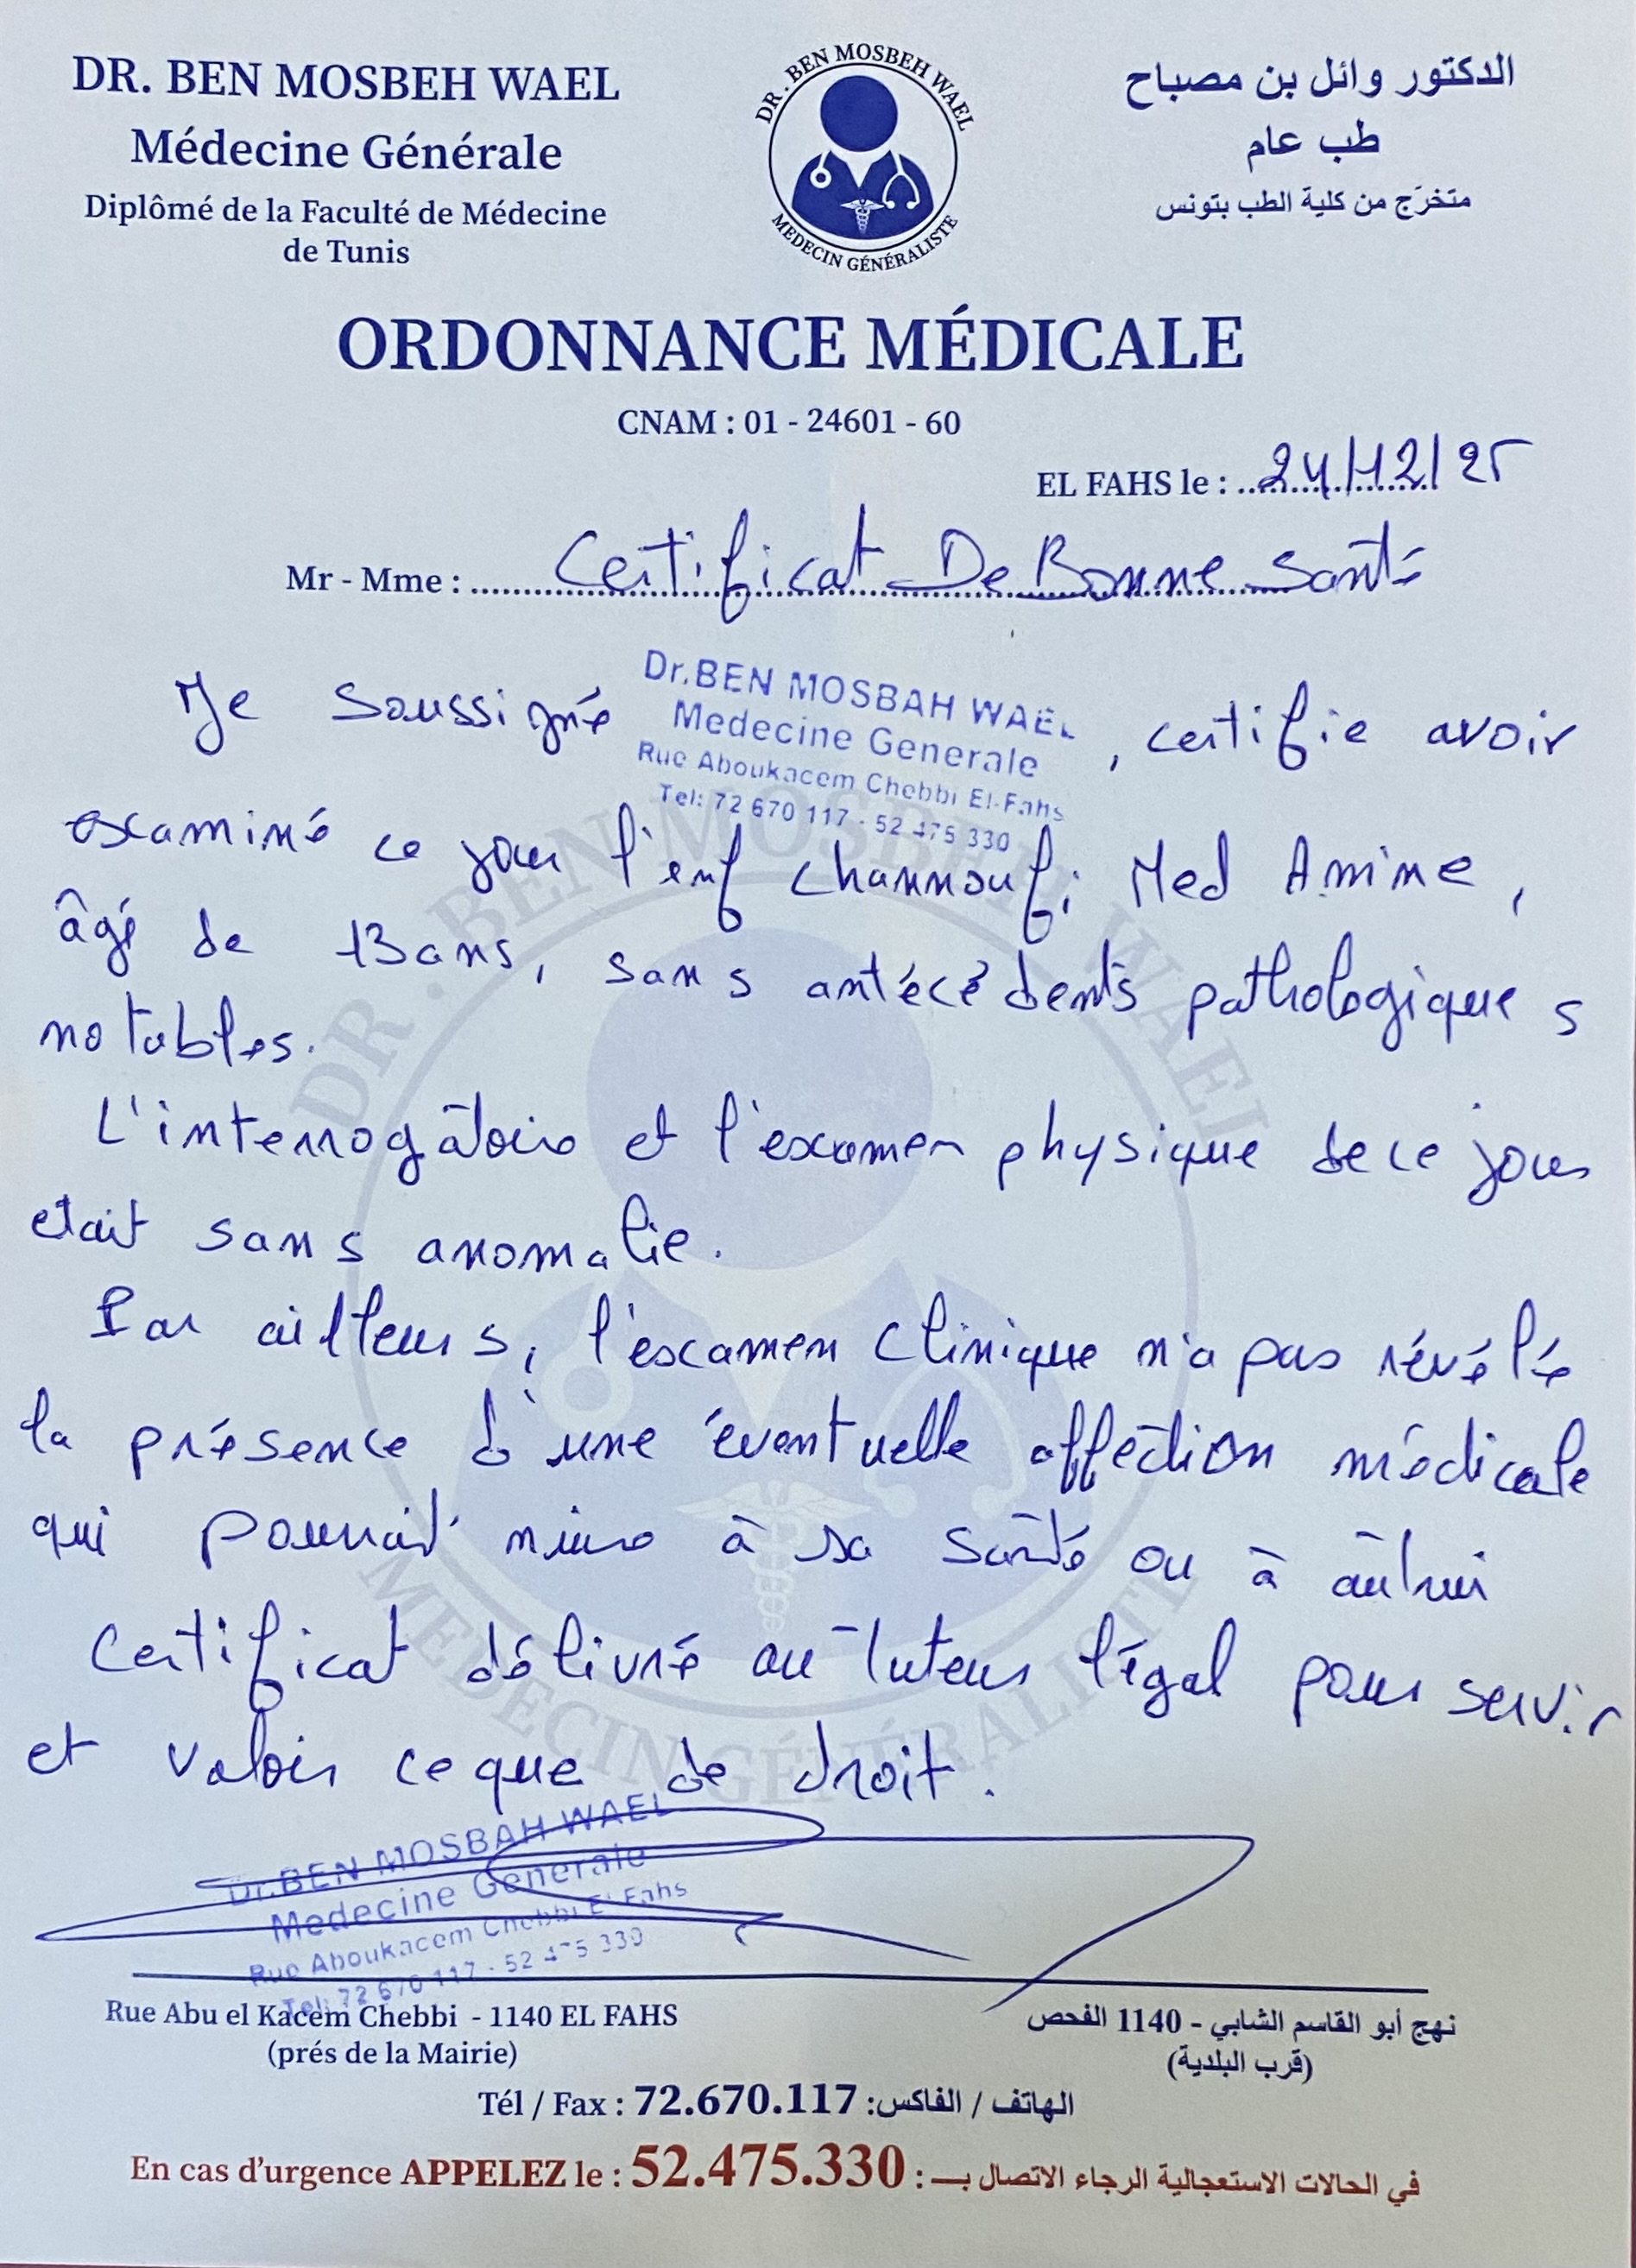 DR. BEN MOSBEH WAEL
Médecine Générale
Diplômé de la Faculté de Médecine
de Tunis
DR. BEN MOSBEH WAEL
MEDECIN GÉNÉRALISTE
الدكتور وائل بن مصباح
طب عام
متخرّج من كلية الطب بتونس
ORDONNANCE MÉDICALE
CNAM : 01 - 24601 - 60
EL FAHS le : 24/12/25
Mr - Mme : Certificat De Bonne Santé
Je soussigné
Dr.BEN MOSBAH WAEL
Medecine Generale
Rue Aboukacem Chebbi El-Fahs
Tel: 72 670 117 - 52 475 330
, certifie avoir
examiné ce jour l'enf Channoufi Med Amine,
âgé de 13 ans, sans antécédents pathologiques
notables.
L'interrogatoire et l'examen physique de ce jour
etait sans anomalie.
Par ailleurs, l'examen clinique n'a pas révélé
la présence d'une éventuelle affection médicale
qui pourrait nuire à sa santé ou à autrui
Certificat délivré au tuteur légal pour servir
et valoir ce que de droit.
Dr.BEN MOSBAH WAEL
Medecine Generale
Rue Aboukacem Chebbi El-Fahs
Tel: 72 670 117 - 52 475 330
DR. BEN MOSBEH WAEL
MEDECIN GÉNÉRALISTE
Rue Abu el Kacem Chebbi - 1140 EL FAHS
(prés de la Mairie)
نهج أبو القاسم الشابي - 1140 الفحص
(قرب البلدية)
Tél / Fax : 72.670.117 :الهاتف / الفاكس
En cas d'urgence APPELEZ le : 52.475.330 : في الحالات الاستعجالية الرجاء الاتصال بـ